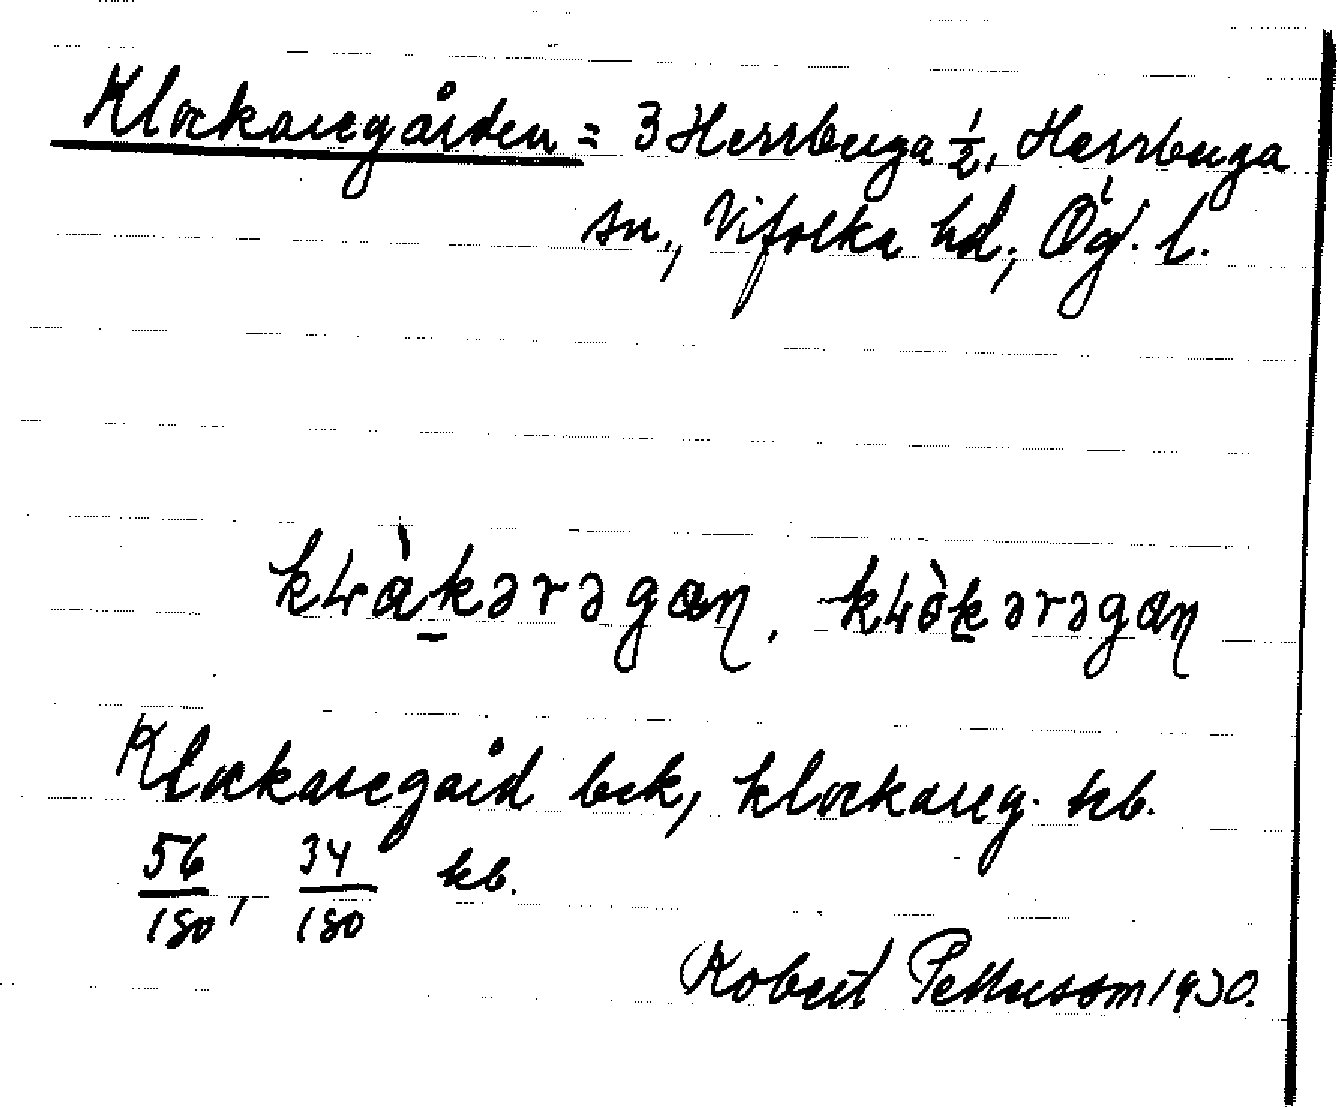 Klockaregården = 3 Herrberga 1/2, Herrberga
sn., Vifolka hd., Ög. l.
kɬὰkərəgαɳ, kɬòkərəgαɳ
Klockaregård bok, klockareg. kb.
56/180, 34/180 kb.
Robert Pettersson 1930.